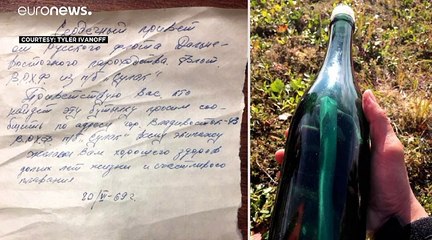 euronews.
COURTESY: TYLER IVANOFF
Сердечный привет
от Русского флота Дальне-
восточного пароходства. Флот
ВРХФ из п/б "Сулак"
Приветствую Вас кто
найдет эту бутылку просим соо-
бщить по адресу гор. Владивосток-43
ВРХФ п/б. Сулак всему экипажу
желаем Вам хорошего здоровья
долгих лет жизни и счастливого
плавания
20/VI-69 г.